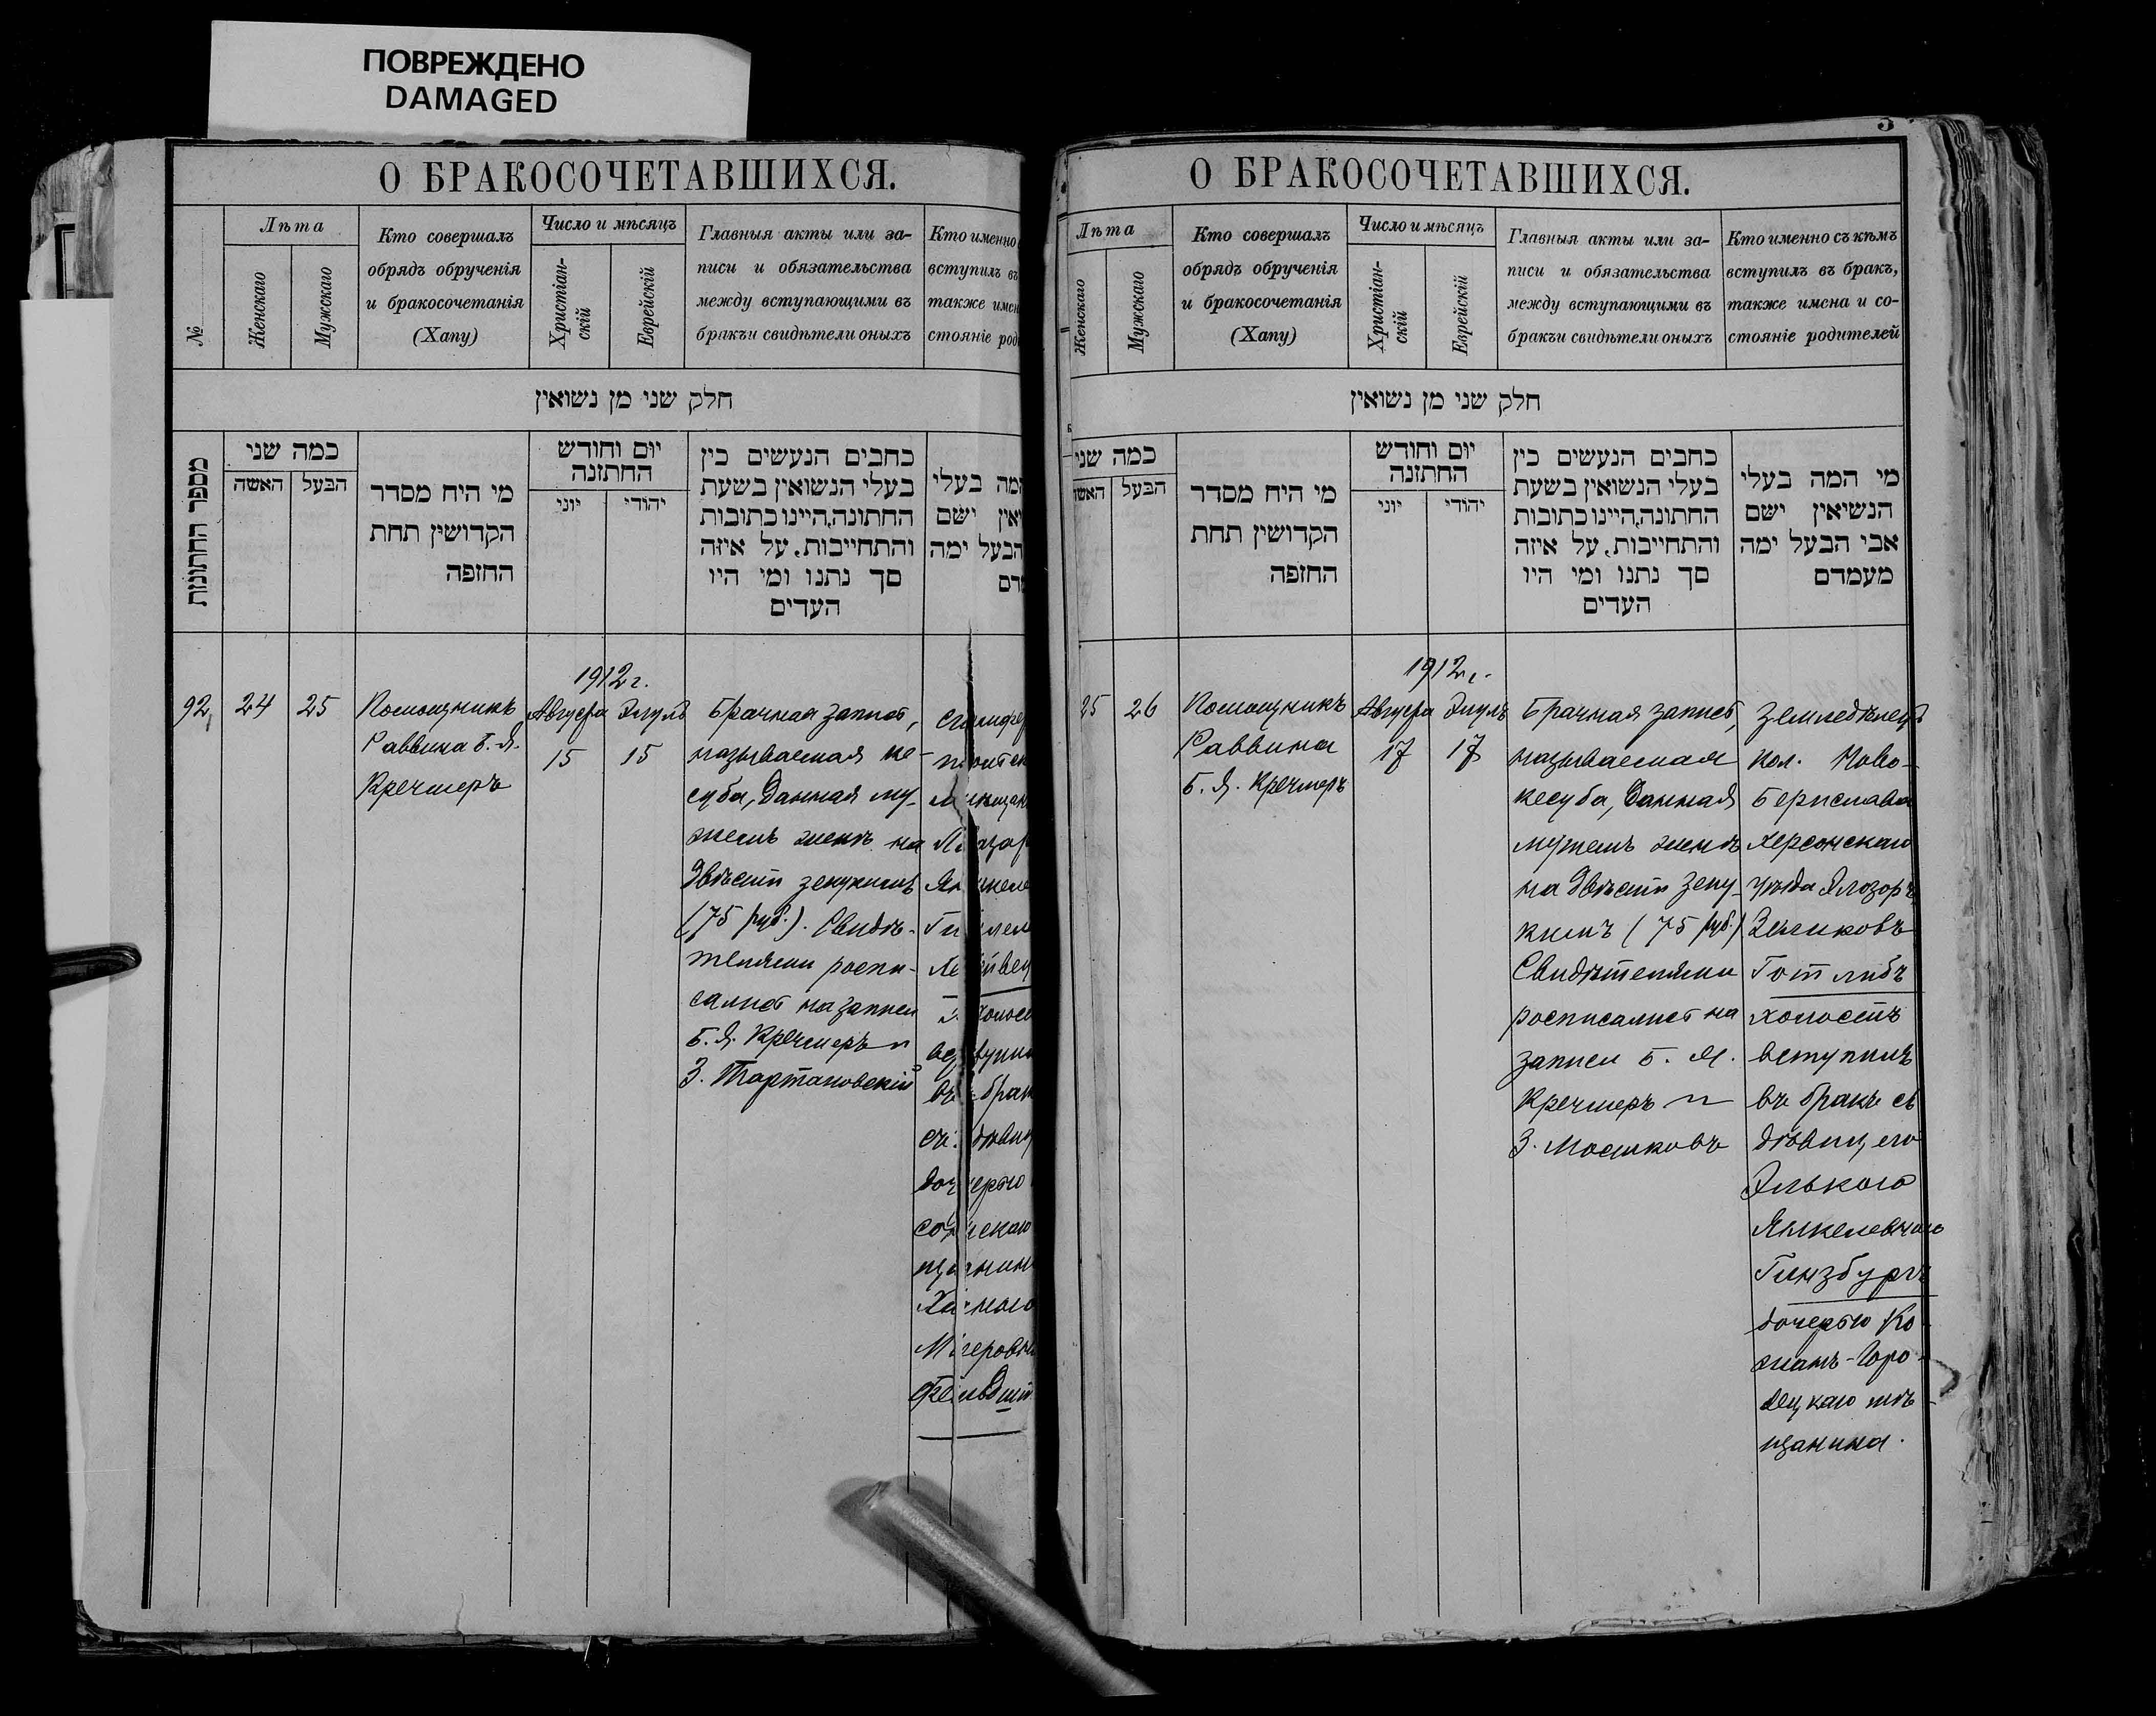 ПОВРЕЖДЕНО
DAMAGED
О БРАКОСОЧЕТАВШИХСЯ.
№
Лѣта
Женскаго
Мужскаго
Кто совершалъ
обрядъ обрученія
и бракосочетанія
(Хапу)
Число и мѣсяцъ
Христіан-
скій
Еврейскій
Главныя акты или за-
писи и обязательства
между вступающими въ
бракъ и свидѣтели оныхъ
Кто именно
вступилъ въ
также имен
стояніе род
חלק שני מן נשואין
מספר החתונות
כמה שני
האשה
הבעל
מי היח מסדר
הקדושין תחת
החופה
יום וחודש
החתונה
יוני
יהודי
כתבים הנעשים בין
בעלי הנשואין בשעת
החתונה, היינו כתובות
והתחייבות, על איזה
סך נתנו ומי היו
העדים
המה בעלי
ואין ישם
הבעל ימה
1912 г.
92
24
25
Помощникъ
Раввина Б. Я.
Кречмеръ
Августа
15
Элулъ
15
Брачная запись,
называемая ке-
суба, данная му-
жемъ женѣ на
двѣсти зекукимъ
(75 руб.). Свидѣ-
телями роспи-
сались на записи
Б. Я. Кречмеръ и
З. Тартаковскій
въ брак
дочерью
О БРАКОСОЧЕТАВШИХСЯ.
Лѣта
Женскаго
Мужскаго
Кто совершалъ
обрядъ обрученія
и бракосочетанія
(Хапу)
Число и мѣсяцъ
Христіан-
скій
Еврейскій
Главныя акты или за-
писи и обязательства
между вступающими въ
бракъ и свидѣтели оныхъ
Кто именно съ кѣмъ
вступилъ въ бракъ,
также имена и со-
стояніе родителей
חלק שני מן נשואין
כמה שני
האשה
הבעל
מי היח מסדר
הקדושין תחת
החופה
יום וחודש
החתונה
יוני
יהודי
כתבים הנעשים בין
בעלי הנשואין בשעת
החתונה, היינו כתובות
והתחייבות, על איזה
סך נתנו ומי היו
העדים
מי המה בעלי
הנשיאין ישם
אבי הבעל ימה
מעמדם
1912 г.
25
26
Помощникъ
Раввина
Б. Я. Кречмеръ
Августа
17
Элулъ
17
Брачная запись,
называемая
кесуба, данная
мужемъ женѣ
на двѣсти зеку-
кимъ (75 руб.)
Свидѣтелями
росписались на
записи Б. Я.
Кречмеръ и
З. Мошковъ
Земледѣлецъ
кол. Ново-
Бериславъ
Херсонскаго
уѣзда
Зеликовъ
Готлибъ
холостъ
вступилъ
въ бракъ съ
дѣвицею
Элькою
Янкелевною
Гинзбургъ
дочерью Ко-
жанъ-Горо-
децкаго мѣ-
щанина.